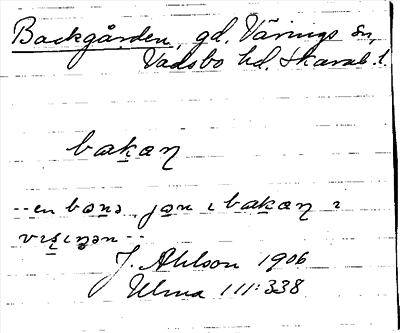 Backgården, gd. Värings sn,
Vadsbo hd. Skarab. l.
bakaŋ
--en bonə jon i bakaŋ i
J. Ahlson 1906
Ulma 111:338